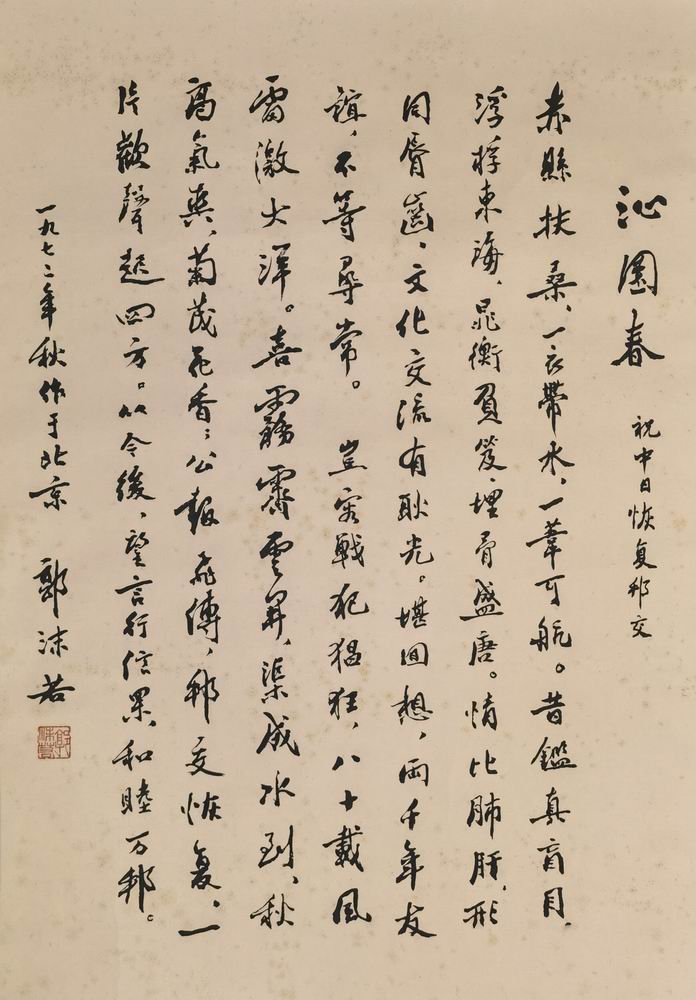 沁園春
祝中日恢复邦交
赤縣扶桑、一衣帶水、一葦可航。昔鑑真盲目、
浮桴東海、晁衡負笈、埋骨盛唐。情比肺肝、形
同脣齒、文化交流有耿光。堪回想、兩千年友
誼、不等尋常。 豈容戰犯猖狂、八十載風
雷激大洋。喜霧霽雲昇、渠成水到、秋
高氣爽、菊茂花香；公報飛傳、邦交恢复、一
片歡聲起四方。从今後、望言行信果、和睦万邦。
一九七二年秋作于北京 郭沫若
郭沫若